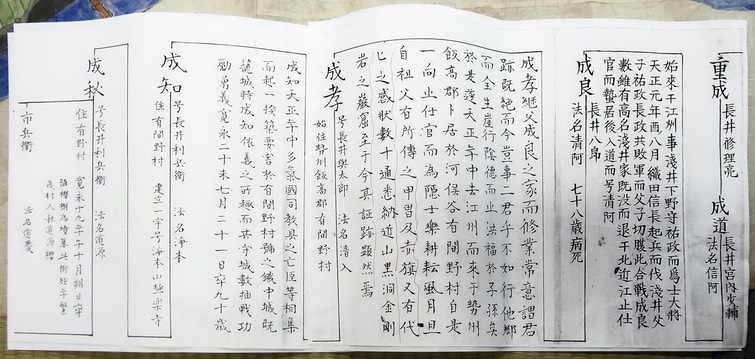 重成
長井修理亮
成道
長井宮内少輔
法名信阿
始來于江州事淺井下野守祐政而爲士大將
天正元年酉八月織田信長起兵而伐淺井父
子祐政長政共敗軍而父子切腹此合戰成良
數雖有高名淺井家既没而退于北近江止仕
官而蟄居後入道而号清阿
成良
長井八郎
法名清阿
七十八歳病死
成孝継父成良之家而修業常意謂君
跡既絶而今豈事二君乎不如行他郷
而全生崖行陰徳而止洪福於子孫矣
於是蓬天正年中去江州而來于勢州
飯高郡卜居於河俣谷有間野村自是
一向止仕官而為隠士樂耕耘風月且
自祖父有所傳之甲冑及赤旗又有代
〻之感状數十通悉納近山黒洞金剛
若之巌窟至于今其証跡顕然焉
成孝
号長井與太郎
法名清入
始住勢州飯高郡有間野村
成知天正年中多氣國司教具之亡臣等相集
而起一揆築要害於有間野村号之鐵中城既
籠城時成知依義之所趣而共守城數抽戰功
勵勇義寛永二十未七月二十一日卒九十歳
成知
号長井利兵衞
法名淨本
住有間野村
建立一宇号淨本山極樂寺
成秋
号長井利兵衞
法名道源
住有野村
寛永十九年午十月朔日卒
市兵衞
法名道慶